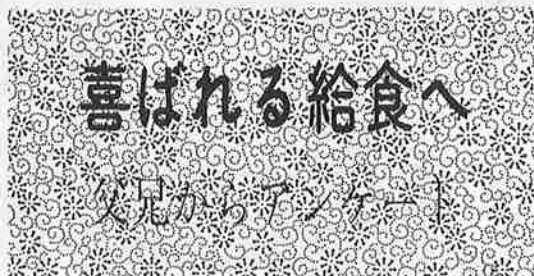 喜ばれる給食へ
父兄からアンケート